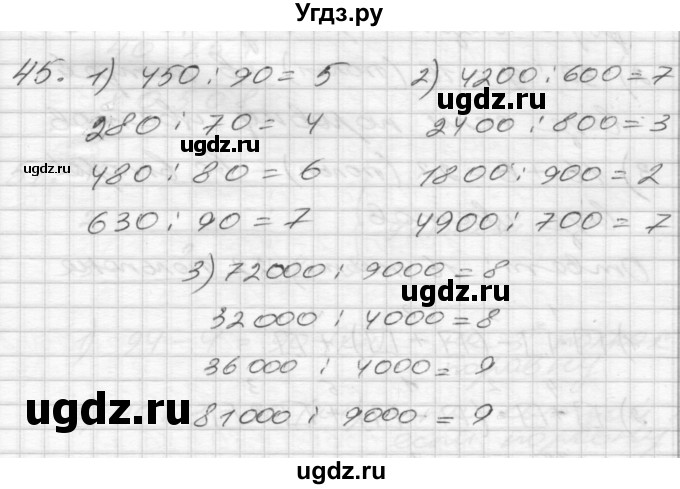 Угдз.ру
45. 1) 450 : 90 = 5   2) 4200 : 600 = 7
ugdz.ru
280 : 70 = 4   2400 : 800 = 3
ugdz.ru
ugdz.ru
480 : 80 = 6   1800 : 900 = 2
630 : 90 = 7   4900 : 700 = 7
3) 72000 : 9000 = 8
ugdz.ru
32000 : 4000 = 8
36000 : 4000 = 9
ugdz.ru
81000 : 9000 = 9
ugdz.ru
ugdz.ru